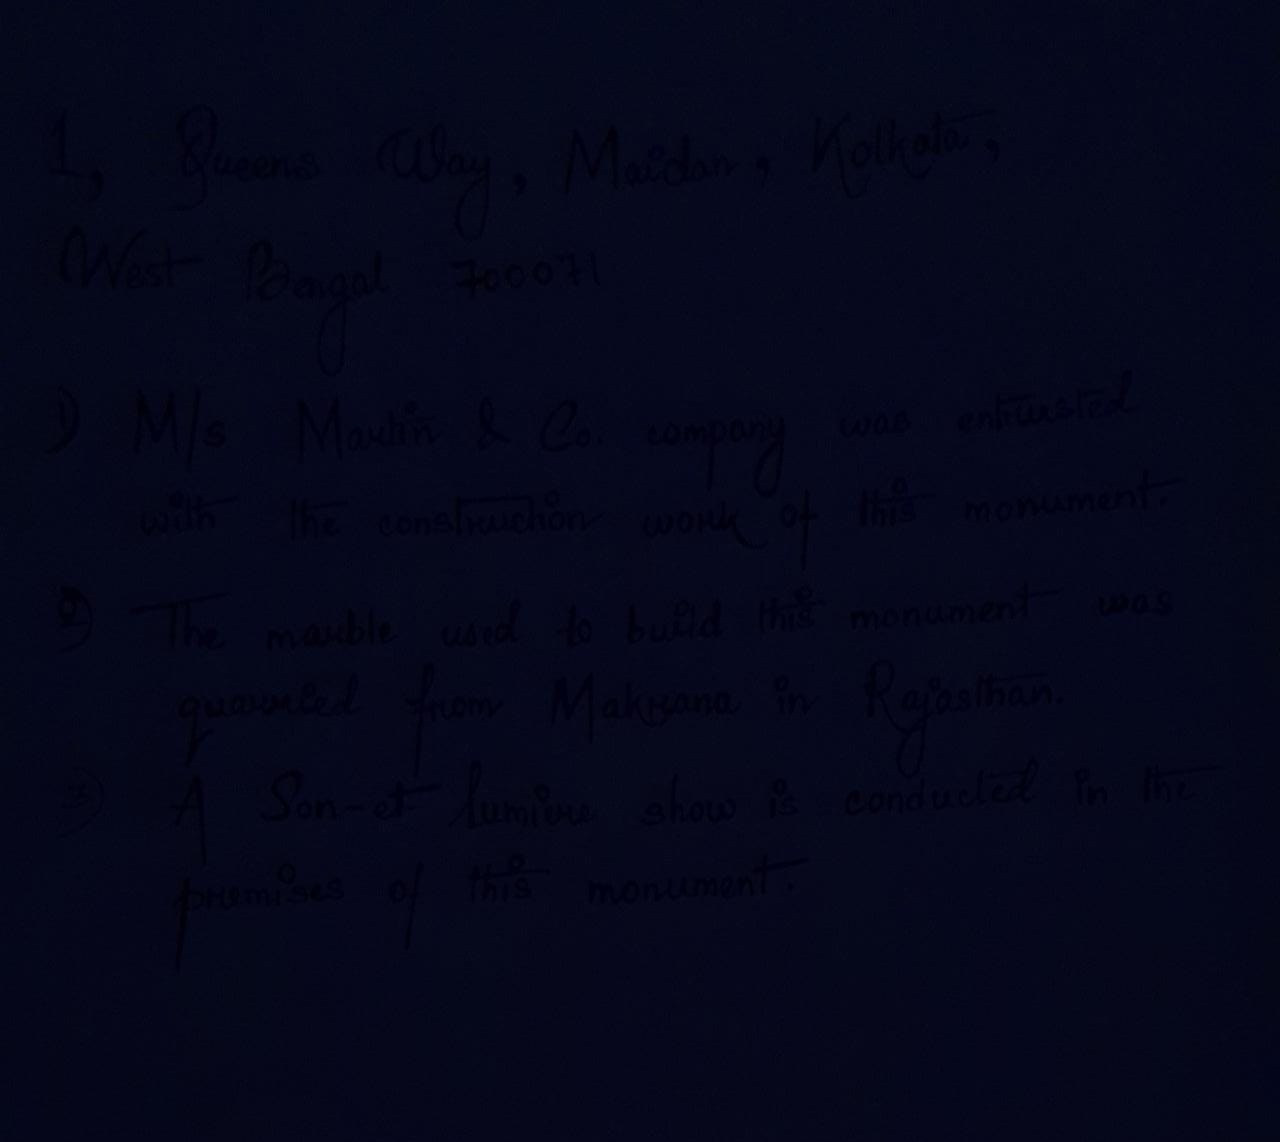 1, Queens Way, Maidan, Kolkata,
West Bengal 700071
1) M/s Martin & Co. company was entrusted
with the construction work of this monument.
2) The marble used to build this monument was
quarried from Makrana in Rajasthan.
3) A Son-et lumiere show is conducted in the
premises of this monument.